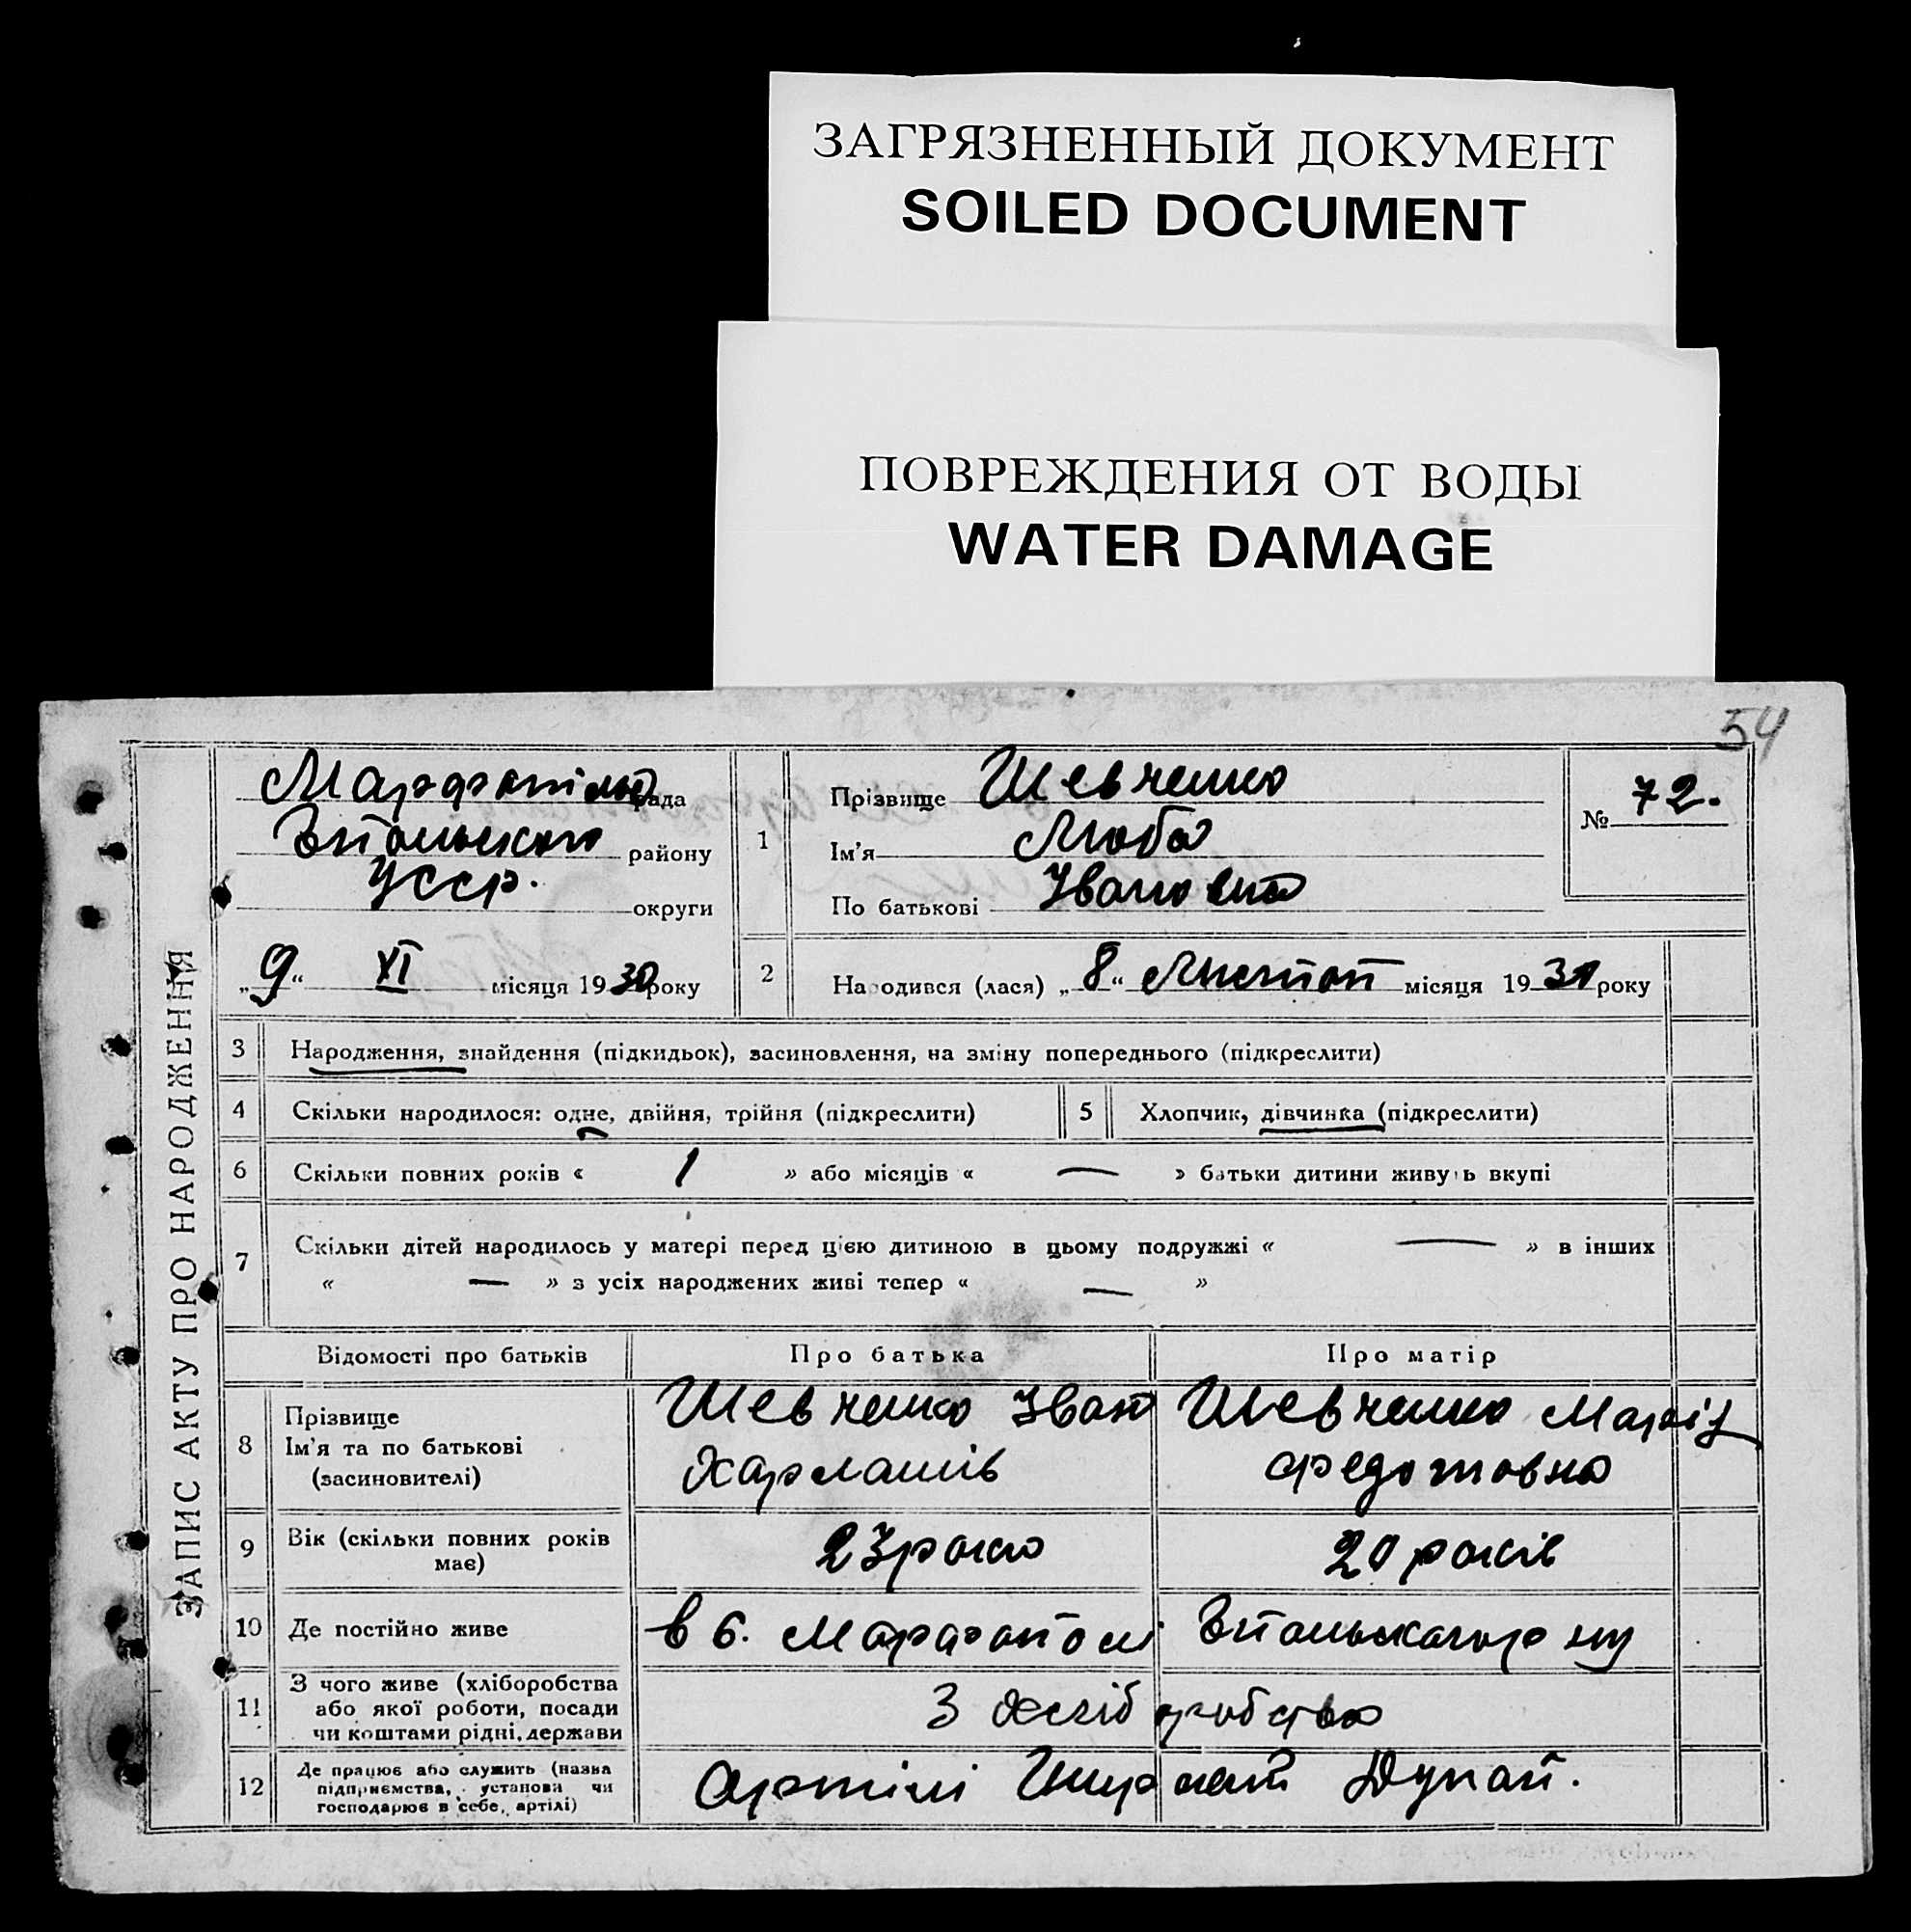 ЗАГРЯЗНЕННЫЙ ДОКУМЕНТ
SOILED DOCUMENT
ПОВРЕЖДЕНИЯ ОТ ВОДЫ
WATER DAMAGE
54
ЗАПИС АКТУ ПРО НАРОДЖЕННЯ
рада
району
УССР. округи
„9“ XI місяця 1930 року
1 Прізвище Шевченко
Ім'я Люба
По батькові Івановна
№ 72.
2 Народився (лася) „8“ Листоп місяця 1930 року
3 Народження, знайдення (підкидьок), засиновлення, на зміну попереднього (підкреслити)
4 Скільки народилося: одне, двійня, трійня (підкреслити)
5 Хлопчик, дівчинка (підкреслити)
6 Скільки повних років « 1 » або місяців « — » батьки дитини живуть вкупі
7 Скільки дітей народилось у матері перед цією дитиною в цьому подружжі « — » в інших
« — » з усіх народжених живі тепер « — »
Відомості про батьків Про батька Про матір
8 Прізвище
Ім'я та по батькові
(засиновителі)
Шевченко Іван
Харлашів
Шевченко Марія
Федотовна
9 Вік (скільки повних років
має)
23 роки
20 років
10 Де постійно живе
в с.
11 З чого живе (хліборобства
або якої роботи, посади
чи коштами рідні, держави
З хліборобства
12 Де працює або служить (назва
підприємства, установи чи
господарює в себе, артілі)
Артілі Дунай.